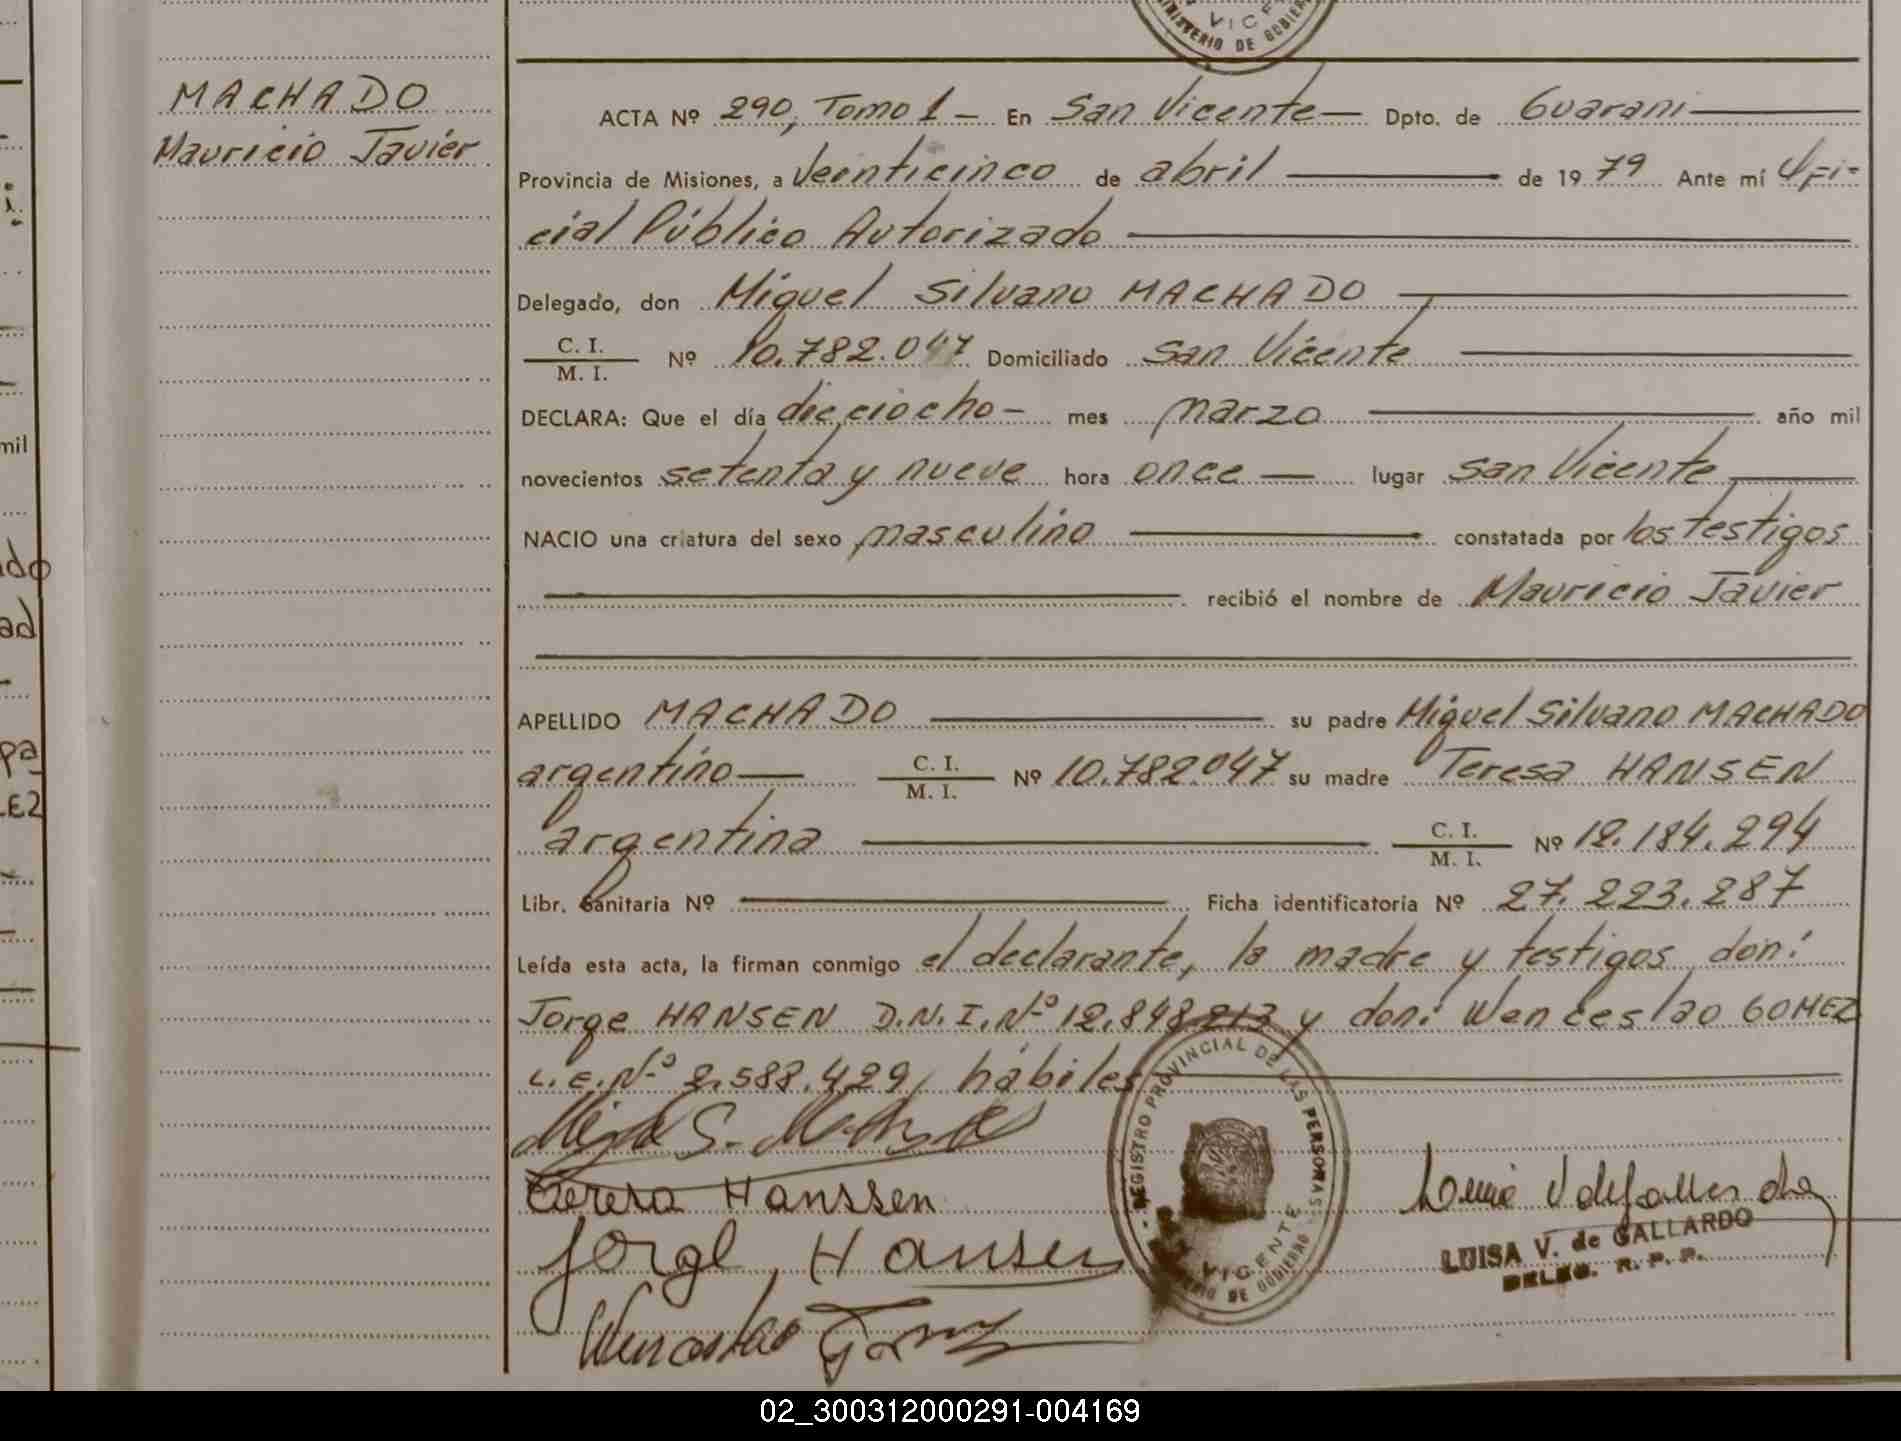 VICE
MINISTERIO DE GOBIERNO
MACHADO
Mauricio Javier
ACTA Nº 290, Tomo 1 — En San Vicente — Dpto. de Guarani
Provincia de Misiones, a veinticinco de abril de 1979 Ante mí Ofi-
cial Público Autorizado
Delegado, don Miguel Silvano MACHADO
C. I.
M. I. Nº 10.782.047 Domiciliado San Vicente
DECLARA: Que el día diecciocho — mes marzo año mil
novecientos setenta y nueve hora once — lugar San Vicente
NACIO una criatura del sexo masculino constatada por los testigos
recibió el nombre de Mauricio Javier
APELLIDO MACHADO su padre Miguel Silvano MACHADO
argentino — C. I.
M. I. Nº 10.782.047 su madre Teresa HANSEN
argentina C. I.
M. I. Nº 12.184.294
Libr. Sanitaria Nº Ficha identificatoria Nº 27.223.287
Leída esta acta, la firman conmigo el declarante, la madre y testigos don:
Jorge HANSEN D.N.I. Nº 12.848.213 y don: Wenceslao GOMEZ
L.E. Nº 2.588.429, hábiles
Teresa Hanssen
Jorge Hansen
REGISTRO PROVINCIAL DE LAS PERSONAS
VICENTE
DE GOBIERNO
LUISA V. de GALLARDO
DELEG. R. P. P.
mil
ado
ad
pa
LEZ
02_300312000291-004169